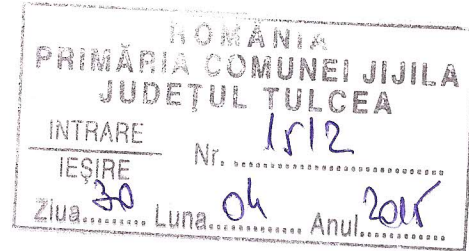 ROMÂNIA
PRIMĂRIA COMUNEI JIJILA
JUDEȚUL TULCEA
INTRARE
IEȘIRE
Nr. 1512
Ziua 30 Luna 04 Anul 2015